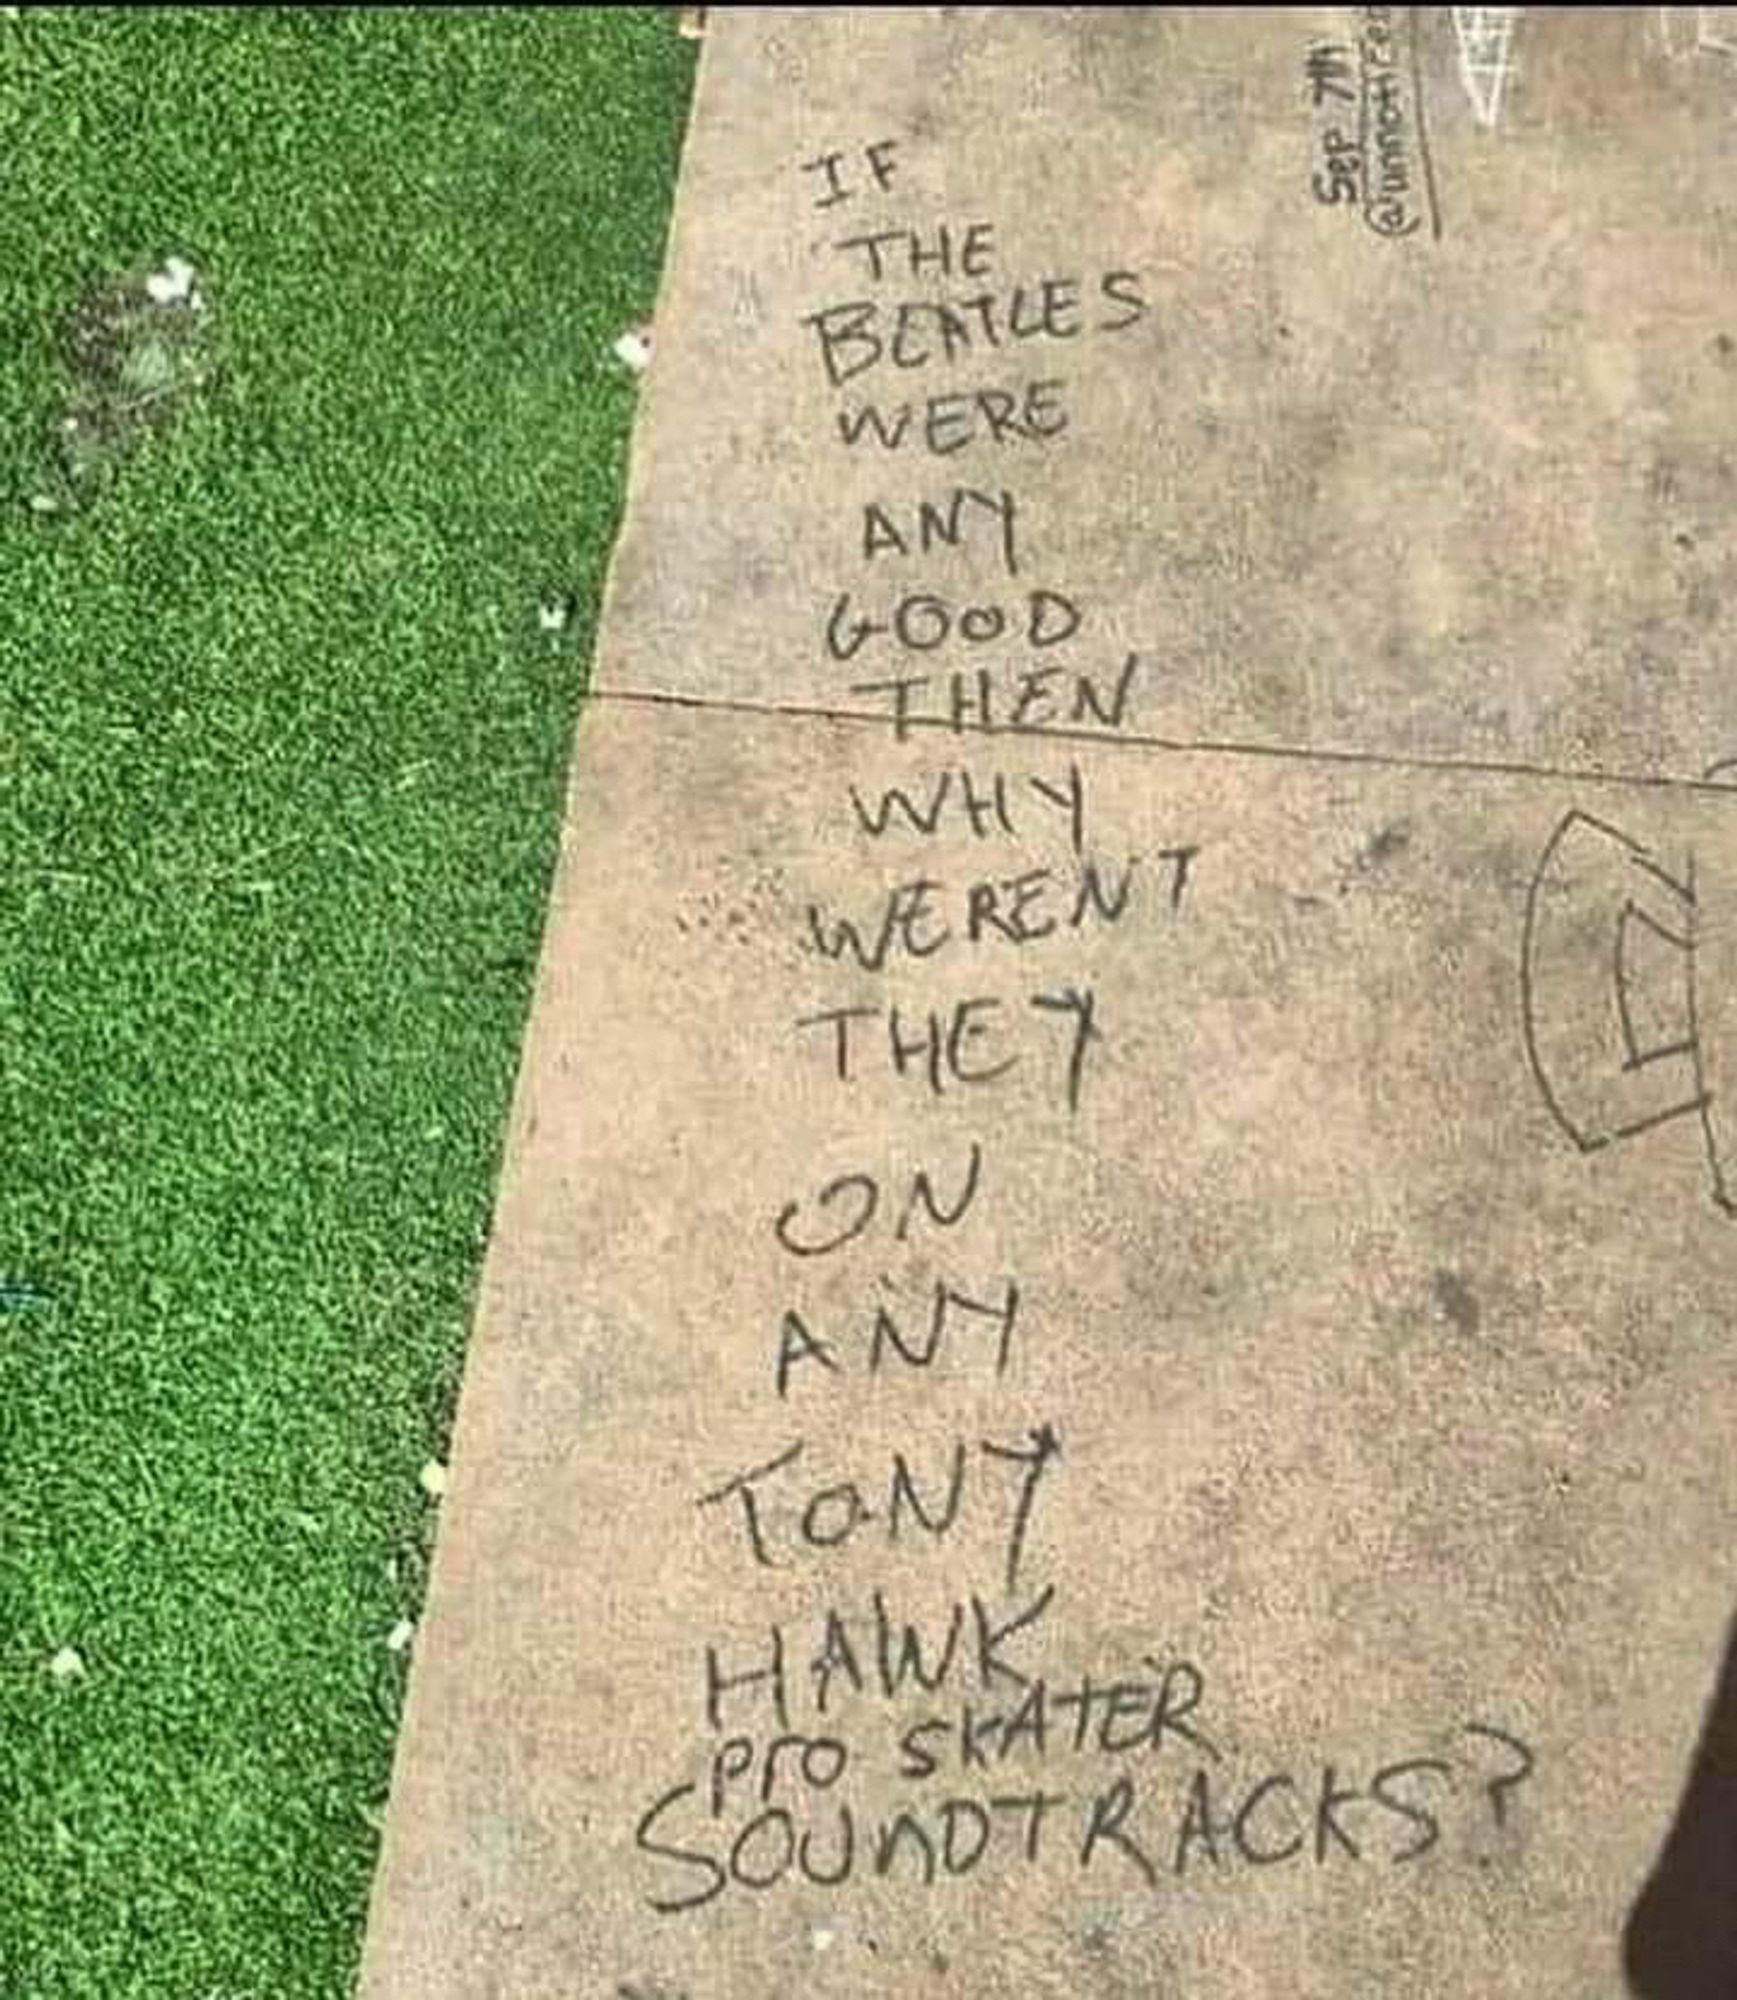 IF
THE
BEATLES
WERE
ANY
GOOD
THEN
WHY
WERENT
THEY
ON
ANY
TONY
HAWK
PrO SKATER
SOUNDTRACKS?
Sep 7th